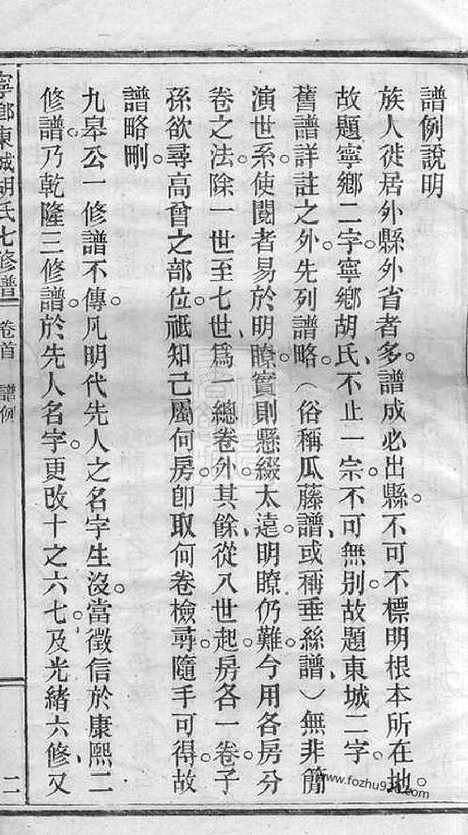 譜例說明
族人徙居外縣外省者多。譜成必出縣。不可不標明根本所在地。
故題寧鄉二字。寧鄉胡氏、不止一宗、不可無別。故題東城二字。
舊譜詳註之外、先列譜略、（俗稱瓜藤譜、或稱垂絲譜）無非簡
演世系、使閱者易於明瞭。實則懸綴太遠。明瞭仍難。今用各房分
卷之法。除一世至七世、爲一總卷外。其餘從八世起。房各一卷。子
孫欲尋高曾之部位。祇知己屬何房、卽取何卷檢尋。隨手可得。故
譜略刪。
九皋公一修譜不傳。凡明代先人之名字生沒。當徵信於康熙二
修譜。乃乾隆三修譜。於先人名字。更改十之六七。及光緒六修又
寧鄉東城胡氏七修譜
卷首
譜例
二
www.fozhu9